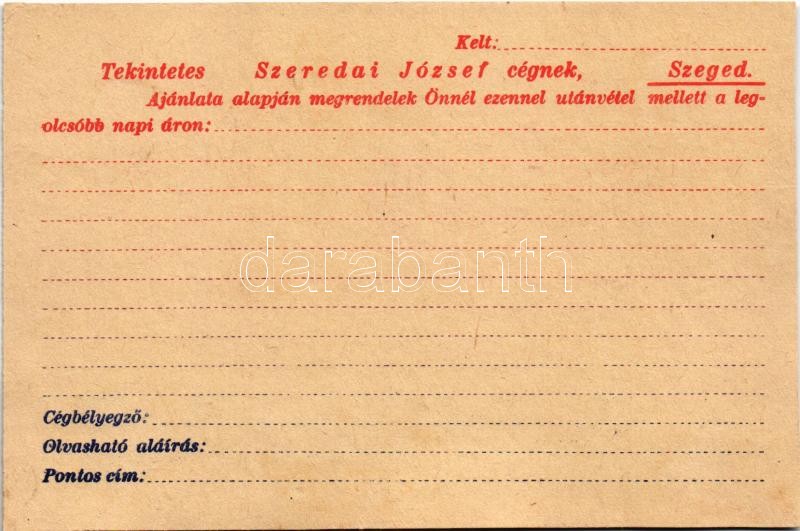 Kelt:
Tekintetes Szeredai József cégnek, Szeged.
Ajánlata alapján megrendelek Önnél ezennel utánvétel mellett a leg-
olcsóbb napi áron:
darabanth
Cégbélyegző:
Olvasható aláírás:
Pontos cím: